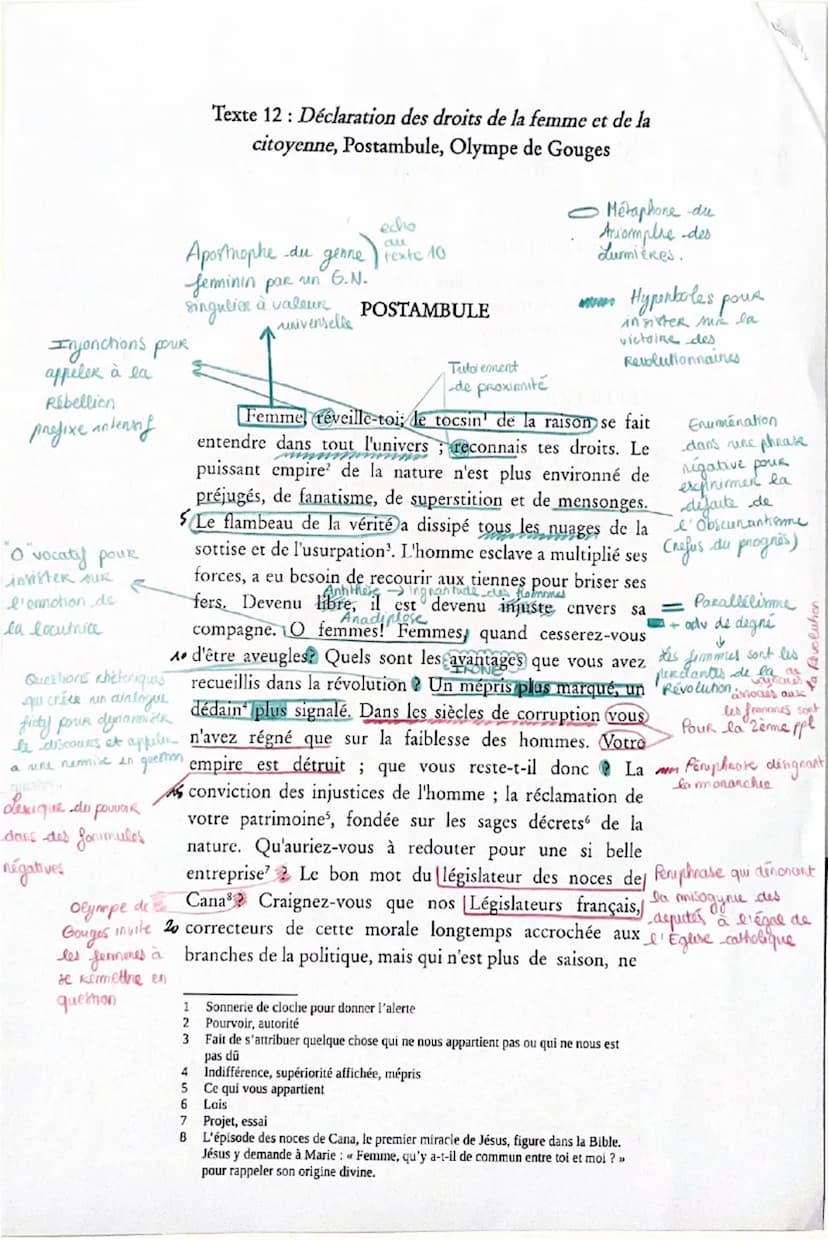 Texte 12 : Déclaration des droits de la femme et de la
citoyenne, Postambule, Olympe de Gouges
Métaphore du
triomphe des
Lumières.
echo
au
texte 10
Apostrophe du genre
feminin par un G.N.
singulier à valeur
universelle
Hyperboles pour
insister sur la
victoire des
Révolutionnaires
POSTAMBULE
Injonctions pour
appeler à la
Rébellion
prefixe intensif
Tutoiement
de proximité
Femme, réveille-toi; le tocsin¹ de la raison se fait
entendre dans tout l'univers ; reconnais tes droits. Le
puissant empire² de la nature n'est plus environné de
préjugés, de fanatisme, de superstition et de mensonges.
5 Le flambeau de la vérité a dissipé tous les nuages de la
sottise et de l'usurpation³. L'homme esclave a multiplié ses
forces, a eu besoin de recourir aux tiennes pour briser ses
Antithèse → ingratitude des hommes
fers. Devenu libre, il est devenu injuste envers sa
Anadiplose
compagne. O femmes! Femmes, quand cesserez-vous
10 d'être aveugles? Quels sont les avantages que vous avez
IRONIE
recueillis dans la révolution ? Un mépris plus marqué, un
dédain⁴ plus signalé. Dans les siècles de corruption vous
n'avez régné que sur la faiblesse des hommes. Votre
empire est détruit ; que vous reste-t-il donc ? La
15 conviction des injustices de l'homme ; la réclamation de
votre patrimoine⁵, fondée sur les sages décrets⁶ de la
nature. Qu'auriez-vous à redouter pour une si belle
entreprise⁷ ? Le bon mot du législateur des noces de
Cana⁸? Craignez-vous que nos Législateurs français,
20 correcteurs de cette morale longtemps accrochée aux
branches de la politique, mais qui n'est plus de saison, ne
Enumération
dans une phrase
négative pour
exprimer la
défaite de
l'Obscurantisme
(refus du progrès)
"O" vocatif pour
insister sur
l'émotion de
la locutrice
Parallélisme
+ adv de degré
Les femmes sont les
perdantes de la
Révolution.
associés aux
les femmes sont
la Révolution
Pour la 2ème ppl
Questions rhétoriques
qui crée un dialogue
fictif pour dynamiser
le discours et appeler
a une remise en question
Périphrase désignant
la monarchie
Lexique du pouvoir
dans des formules
négatives
Periphrase qui dénoncent
la misogynie des
députés à l'égal de
l'Eglise catholique
Olympe de
Gouges invite
les femmes à
se remettre en
question
1 Sonnerie de cloche pour donner l'alerte
2 Pourvoir, autorité
3 Fait de s'attribuer quelque chose qui ne nous appartient pas ou qui ne nous est
pas dû
4 Indifférence, supériorité affichée, mépris
5 Ce qui vous appartient
6 Lois
7 Projet, essai
8 L'épisode des noces de Cana, le premier miracle de Jésus, figure dans la Bible.
Jésus y demande à Marie : « Femme, qu'y a-t-il de commun entre toi et moi ? »
pour rappeler son origine divine.